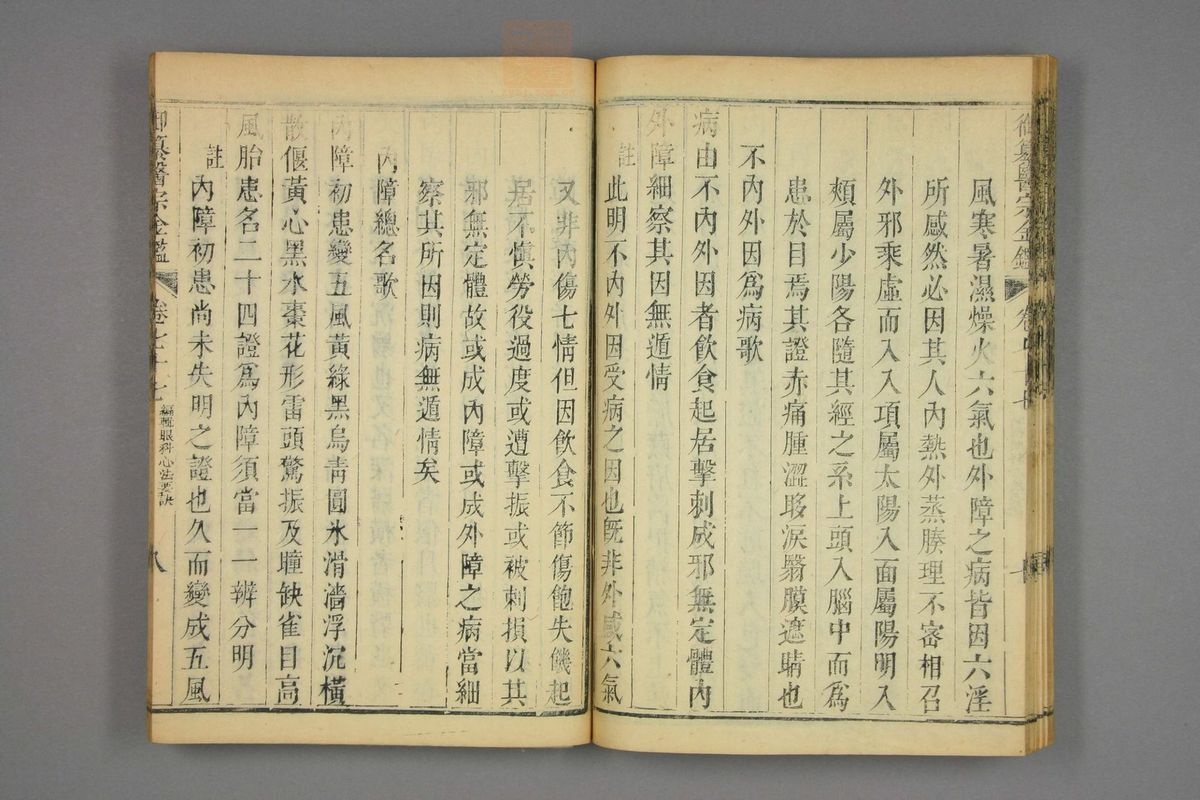 御纂醫宗金鑑
風寒暑濕燥火六氣也外障之病皆因六淫
所感然必因其人內熱外蒸腠理不密相召
外邪乘虛而入入項屬太陽入面屬陽明入
頰屬少陽各隨其經之系上頭入腦中而爲
患於目焉其證赤痛腫澀眵淚翳膜遮睛也
不內外因爲病歌
病由不內外因者飲食起居擊刺成邪無定體內
外障細察其因無遁情
註 此明不內外因受病之因也旣非外感六氣
又非內傷七情但因飲食不節傷飽失饑起
居不慎勞役過度或遭擊振或被刺損以其
邪無定體故或成內障或成外障之病當細
察其所因則病無遁情矣
內障總名歌
內障初患變五風黃綠黑烏靑圓氷滑濇浮沉橫
散偃黃心黑水棗花形雷頭驚振及瞳缺雀目高
風胎患名二十四證爲內障須當一一辨分明
註 內障初患尚未失明之證也久而變成五風
御纂醫宗金鑑 卷七十七 編輯眼科心法要訣 八